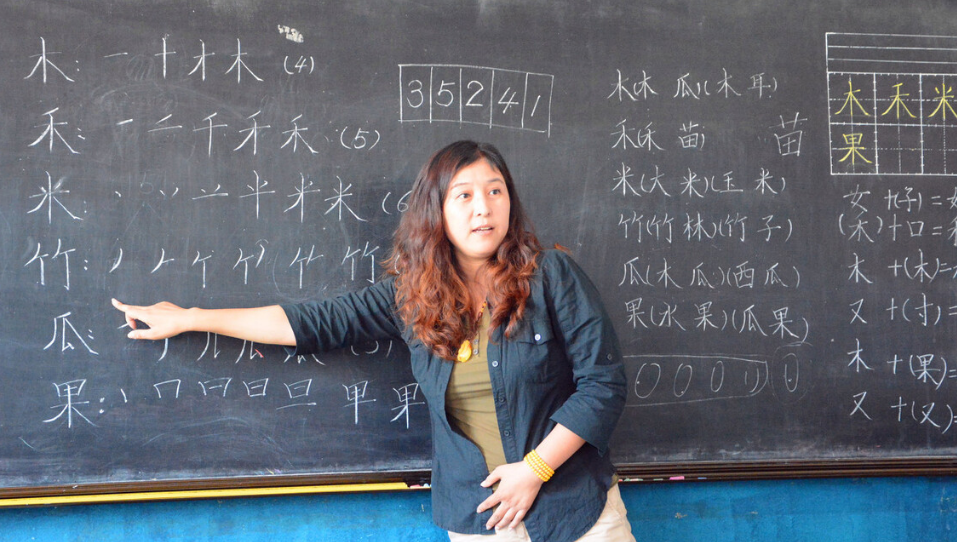 木: 一 十 才 木 (4)
禾: 一 二 千 禾 (5)
米: 丶 丷 米 (6
竹: 丿 竹
瓜: (5)
果: 丨 冂 日 旦 早 果
3 5 2 4 1
木(木 瓜)(木 耳)
禾(禾 苗) 苗
米(大 米)(玉 米)
竹(竹 林)(竹 子)
瓜(木 瓜)(西 瓜)
果(水 果)(瓜 果)
木 禾 米
果
女 +(子) =
(禾) + 口 =
木 + (木) =
又 + (寸) =
木 + (果) =
又 + (又) =